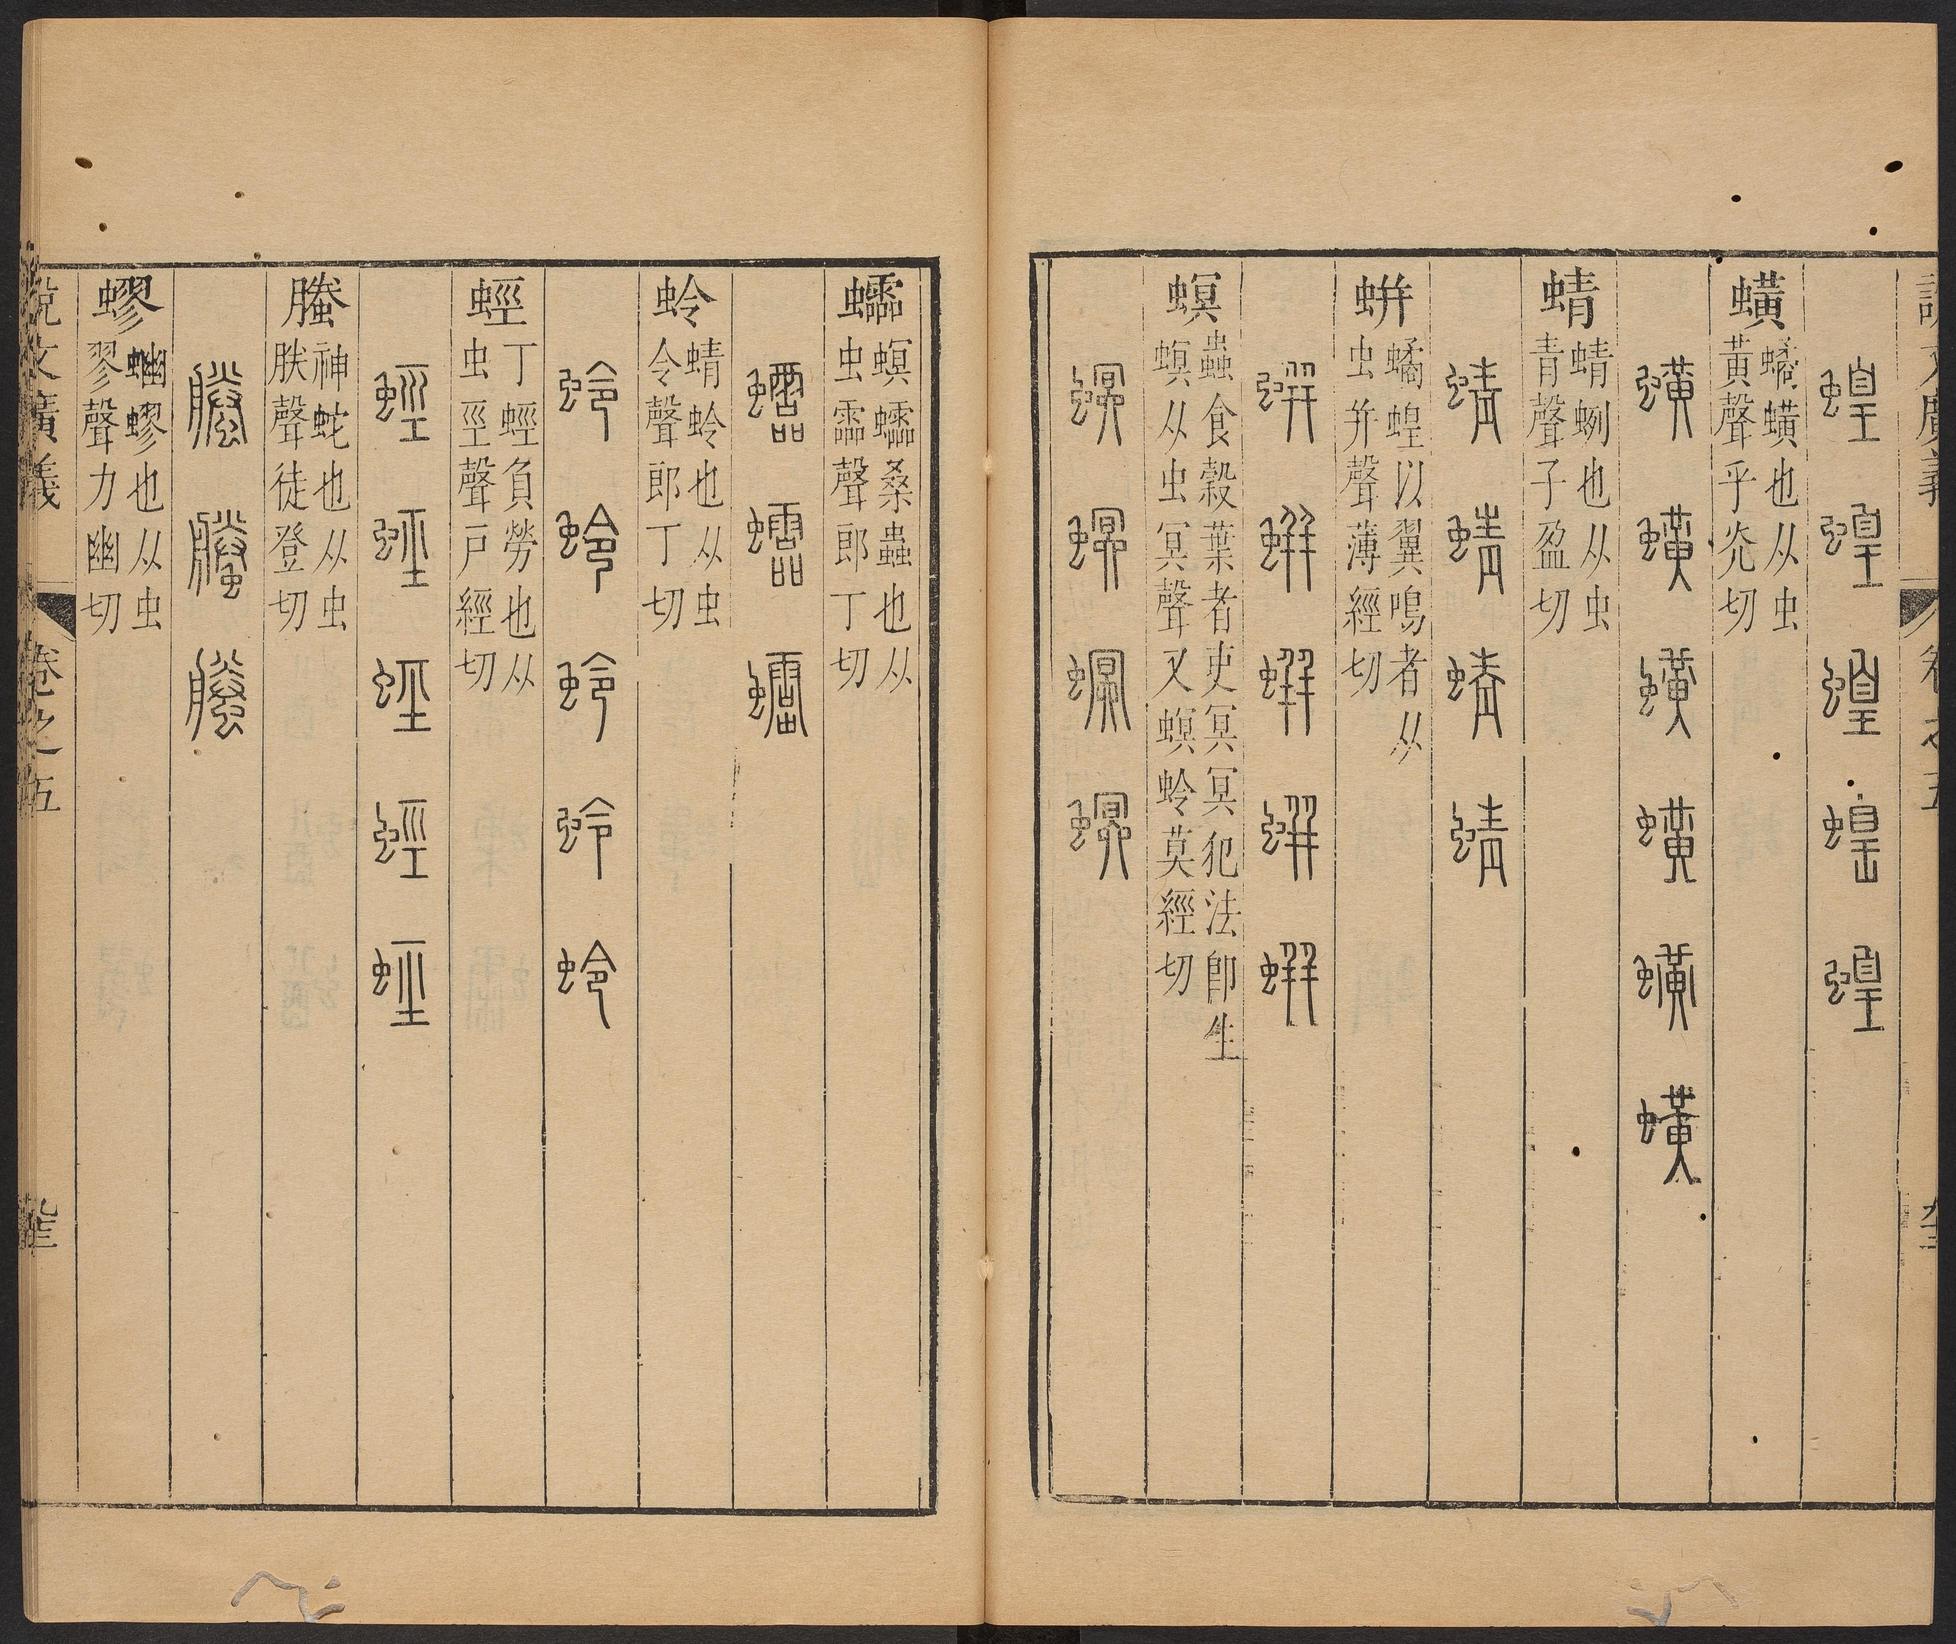 蝗 蝗 蝗 蝗 蝗
蟥
蟜蟥也从虫
黃聲乎光切
蟥 蟥 蟥 蟥 蟥 蟥
蜻
蜻蛚也从虫
青聲子盈切
蜻 蜻 蜻 蜻
蛢
蟜蝗以翼鳴者从
虫并聲薄經切
蛢 蛢 蛢 蛢 蛢
螟
蟲食穀葉者吏冥冥犯法卽生
螟从虫冥聲又螟蛉莫經切
螟 螟 螟 螟
蠕
螟蠕桑蟲也从
虫霝聲郎丁切
蛉
蜻蛉也从虫
令聲郎丁切
蛉 蛉 蛉 蛉 蛉
蛵
丁蛵負勞也从
虫巠聲戸經切
蛵 蛵 蛵 蛵 蛵
螣
神蛇也从虫
朕聲徒登切
螣 螣 螣
蟉
蟉也从虫
翏聲力幽切
說文廣義
卷之五